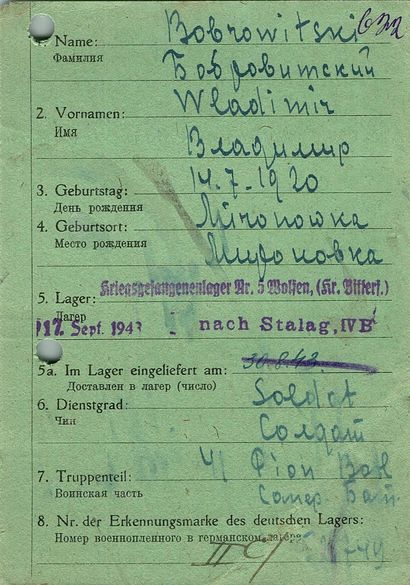 1. Name: Bobrowitski 622
Фамилия Бобровитский
2. Vornamen: Wladimir
Имя Владимир
3. Geburtstag: 14.7.1920
День рождения
4. Geburtsort: Mironowka
Место рождения Мироновка
5. Lager: Kriegsgefangenenlager Nr. 5 Wolfen, (Kr. Bitterf.)
Лагерь
17. Sept. 1943 nach Stalag, IV B
5a. Im Lager eingeliefert am: 30.8.43
Доставлен в лагерь (число)
6. Dienstgrad: Soldat
Чин Солдат
7. Truppenteil: Pion Batl
Воинская часть Сапер. Бат
8. Nr. der Erkennungsmarke des deutschen Lagers:
Номер военнопленного в германском лагере